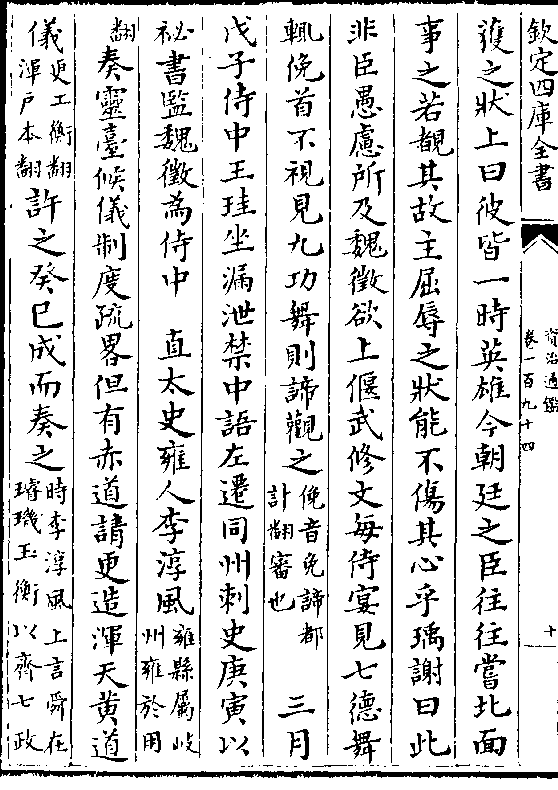 欽定四庫全書
資治通鑑
卷一百九十四
十
獲之狀上曰彼皆一時英雄今朝廷之臣往往嘗北面
事之若覩其故主屈辱之狀能不傷其心乎瑀謝曰此
非臣愚慮所及魏徵欲上偃武修文每侍宴見七德舞
輒俛首不視見九功舞則諦觀之俛音免諦都計翻審也 三月
戊子侍中王珪坐漏泄禁中語左遷同州刺史庚寅以
祕書監魏徵為侍中 直太史雍人李淳風雍縣屬岐州雍於用
翻奏靈臺候儀制度疏畧但有赤道請更造渾天黃道
儀更工衡翻渾戶本翻許之癸巳成而奏之時李淳風上言舜在璿璣玉衡以齊七政